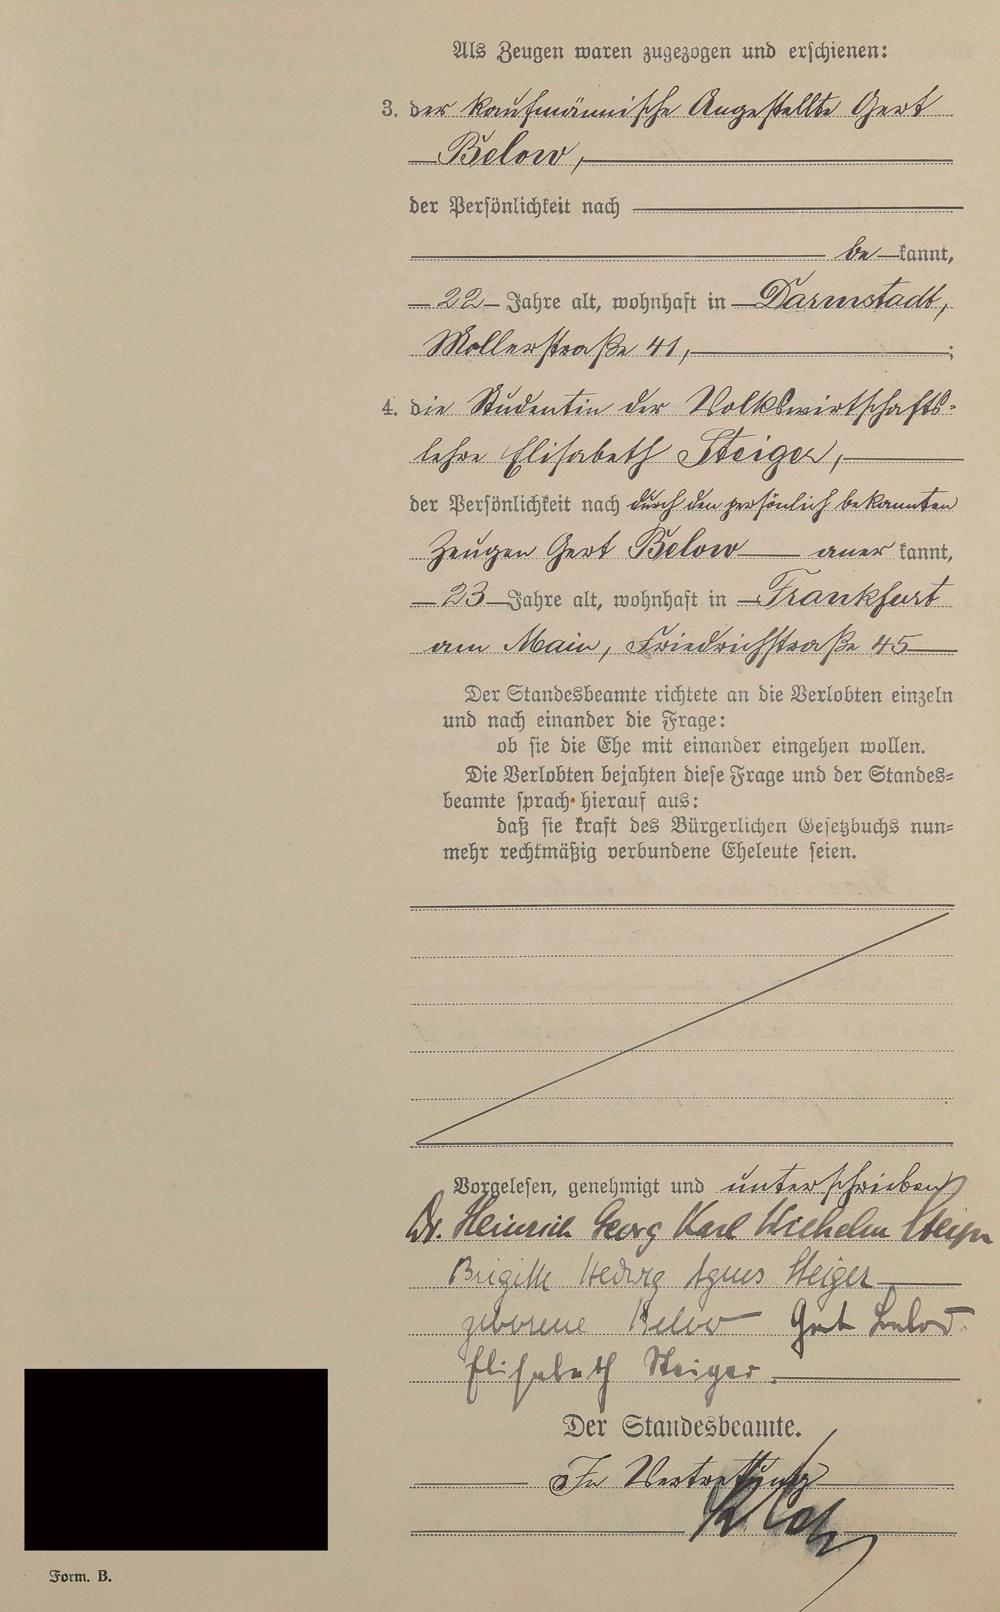 Als Zeugen waren zugezogen und erschienen:
3. der kaufmännische Angestellte Gert
Below,
der Persönlichkeit nach
be kannt,
22 Jahre alt, wohnhaft in Darmstadt,
Mollerstraße 41, ;
4. die Studentin der Volkswirtschafts-
lehre Elisabeth Steiger,
der Persönlichkeit nach durch den persönlich bekannten
Zeugen Gert Below aner kannt,
23 Jahre alt, wohnhaft in Frankfurt
am Main, Friedrichstraße 45
Der Standesbeamte richtete an die Verlobten einzeln
und nach einander die Frage:
ob sie die Ehe mit einander eingehen wollen.
Die Verlobten bejahten diese Frage und der Standes-
beamte sprach hierauf aus:
daß sie kraft des Bürgerlichen Gesetzbuchs nun-
mehr rechtmäßig verbundene Eheleute seien.
Vorgelesen, genehmigt und unterschrieben
Dr. Heinrich Georg Karl Wilhelm Steiger
Brigitte Hedwig Agnes Steiger
geborene Below Gert Below.
Elisabeth Steiger.
Der Standesbeamte.
In Vertretung
Form. B.